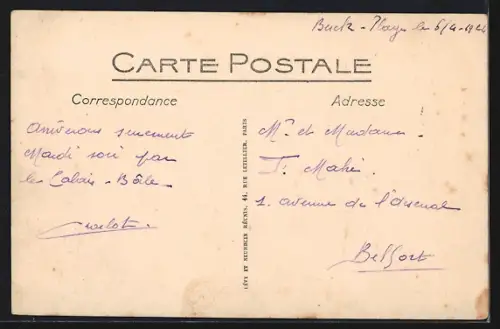 Berck-Plage le 6/4-192
CARTE POSTALE
Correspondance
Adresse
Arriverons surement
Mardi soir par
le Calais-Bâle
Mr et Madame
F. Mahé.
1. avenue de l'Arsenal
Belfort
LÉVY ET NEURDEIN RÉUNIS, 44, RUE LETELLIER, PARIS